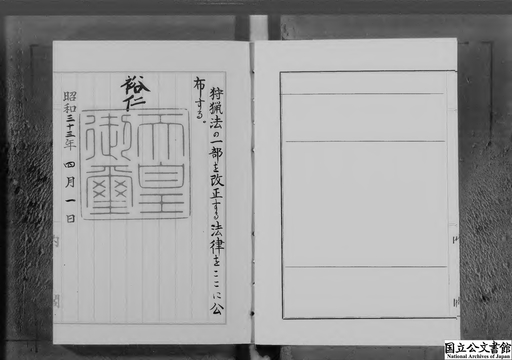 狩猟法の一部を改正する法律をここに公
布する。
裕仁
天皇
御璽
昭和三十三年四月一日
内
閣
内
国立公文書館
National Archives of Japan